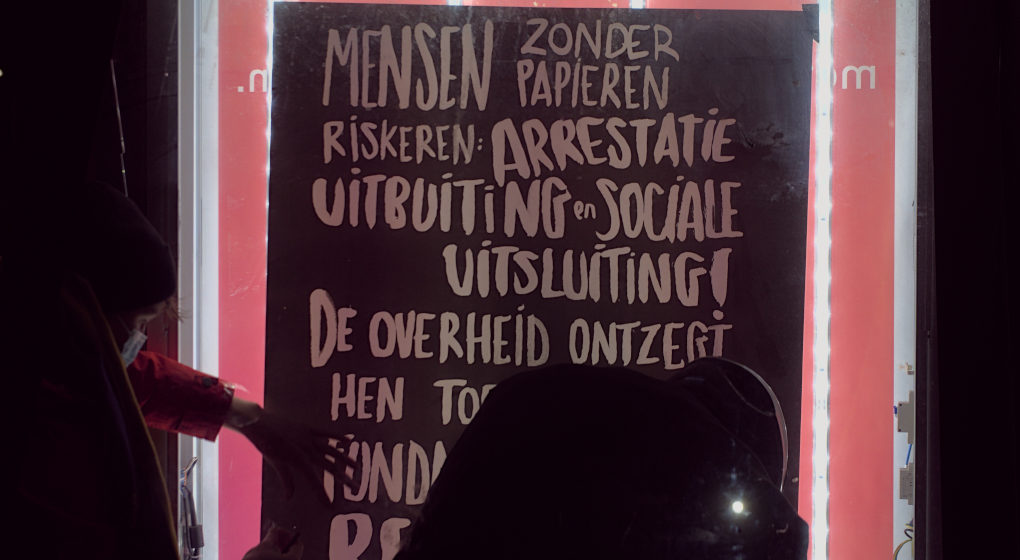 MENSEN ZONDER PAPIEREN
RiSKEREN: ARRESTATiE
UiTBUiTiNG en SOCiALE
UiTSLUiTiNG!
DE OVERHEiD ONTZEGT
HEN